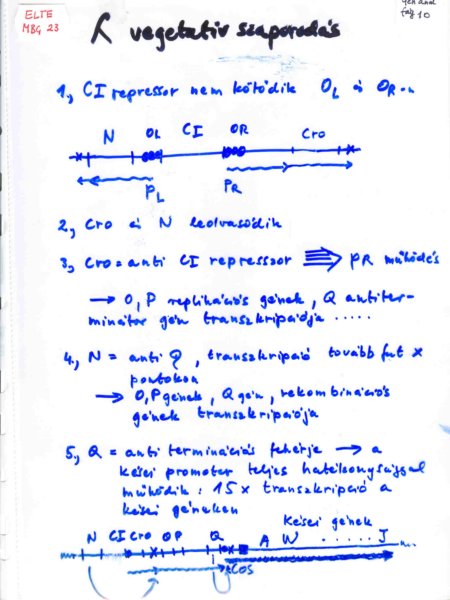 ELTE
MBG 23
fág 10
λ vegetatív szaporodás
1, CI repressor nem kötődik OL és OR-n
N OL CI OR Cro
PL PR
2, Cro és N leolvasódik
3, Cro = anti CI represszor ⇛ PR működés
→ O, P replikációs gének, Q antiter-
minátor gén transzkripciója .....
4, N = anti ϱ, transzkripció tovább fut x
pontokon
→ O, P gének, Q gén, rekombinációs
gének transzkripciója
5, Q = anti terminációs fehérje → a
kései promoter teljes hatékonysággal
működik : 15 x transzkripció a
kései géneken
Kései gének
N CI Cro OP Q A W ...... J
COS